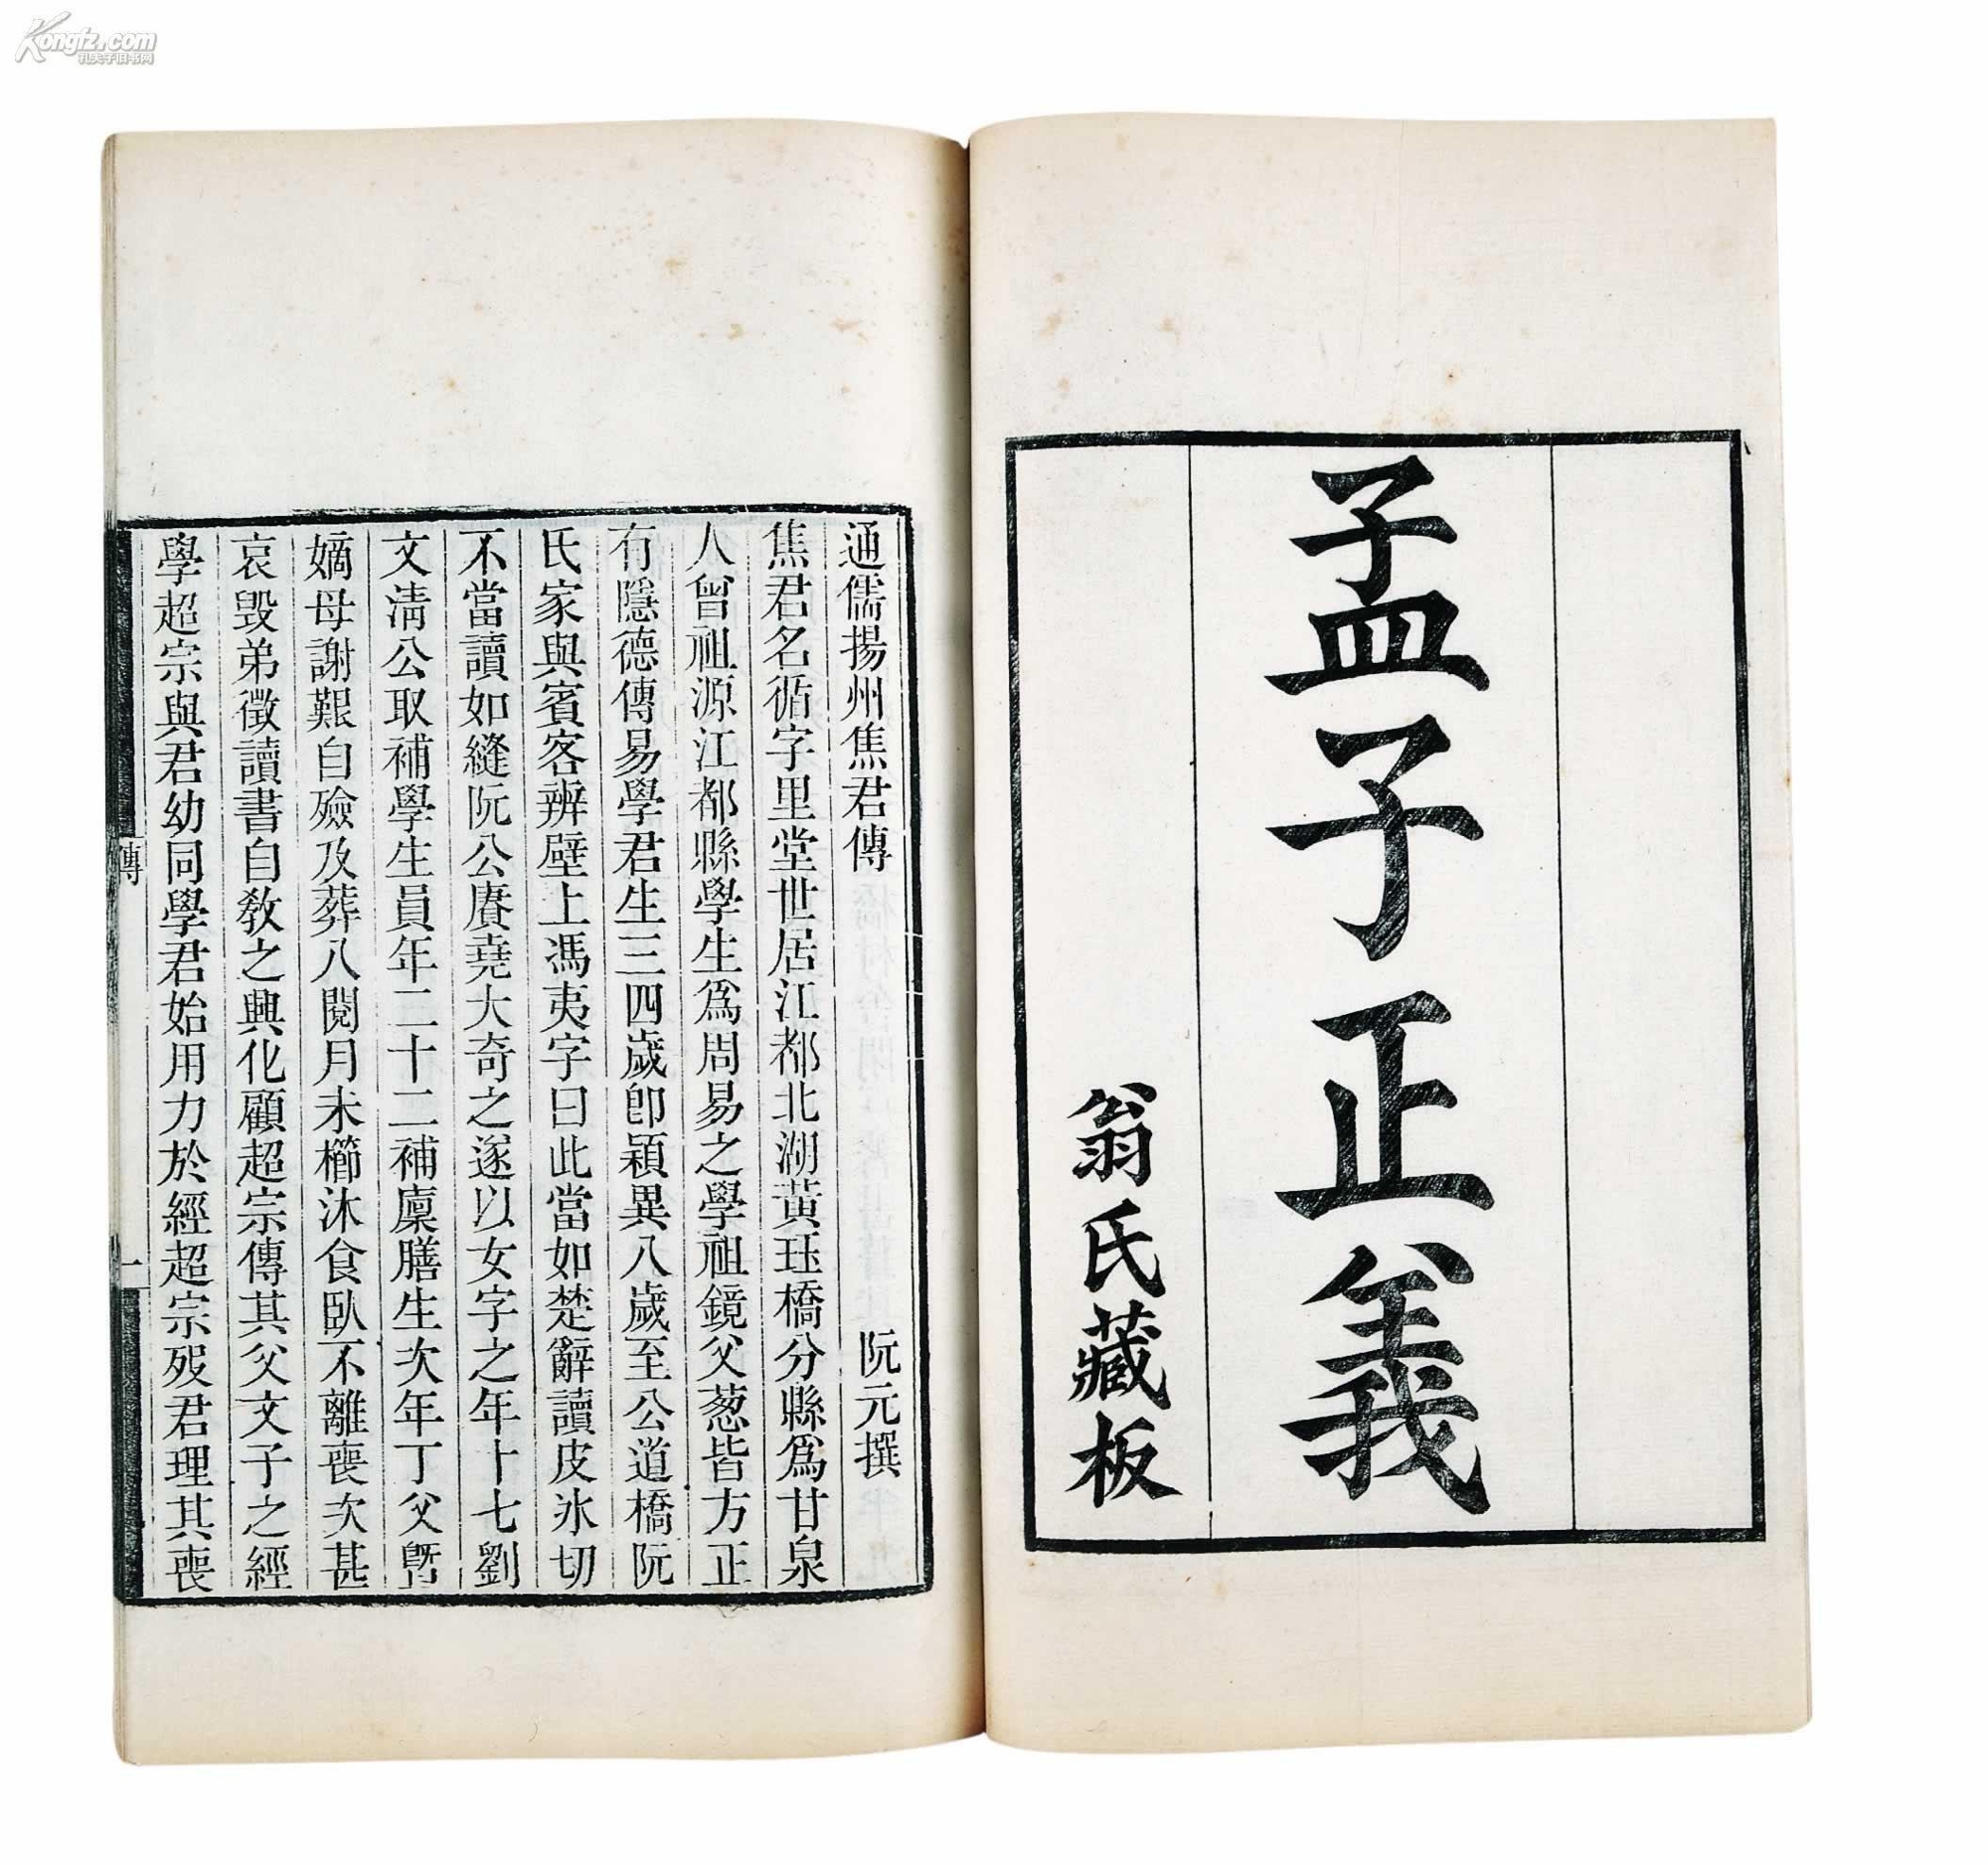 Kongfz.com
孔夫子旧书网
孟子正義
翁氏藏板
通儒揚州焦君傳　阮元撰
焦君名循字里堂世居江都北湖黃珏橋分縣爲甘泉
人曾祖源江都縣學生爲周易之學祖鏡父葱皆方正
有隱德傳易學君生三四歲卽穎異八歲至公道橋阮
氏家與賓客辨壁上馮夷字曰此當如楚辭讀皮冰切
不當讀如縫阮公賡堯大奇之遂以女字之年十七劉
文淸公取補學生員年二十二補廩膳生次年丁父曁
嫡母謝艱自殮及葬八閱月未櫛沐食臥不離喪次甚
哀毀弟徵讀書自敎之興化顧超宗傳其父文子之經
學超宗與君幼同學君始用力於經超宗歿君理其喪
傳
一